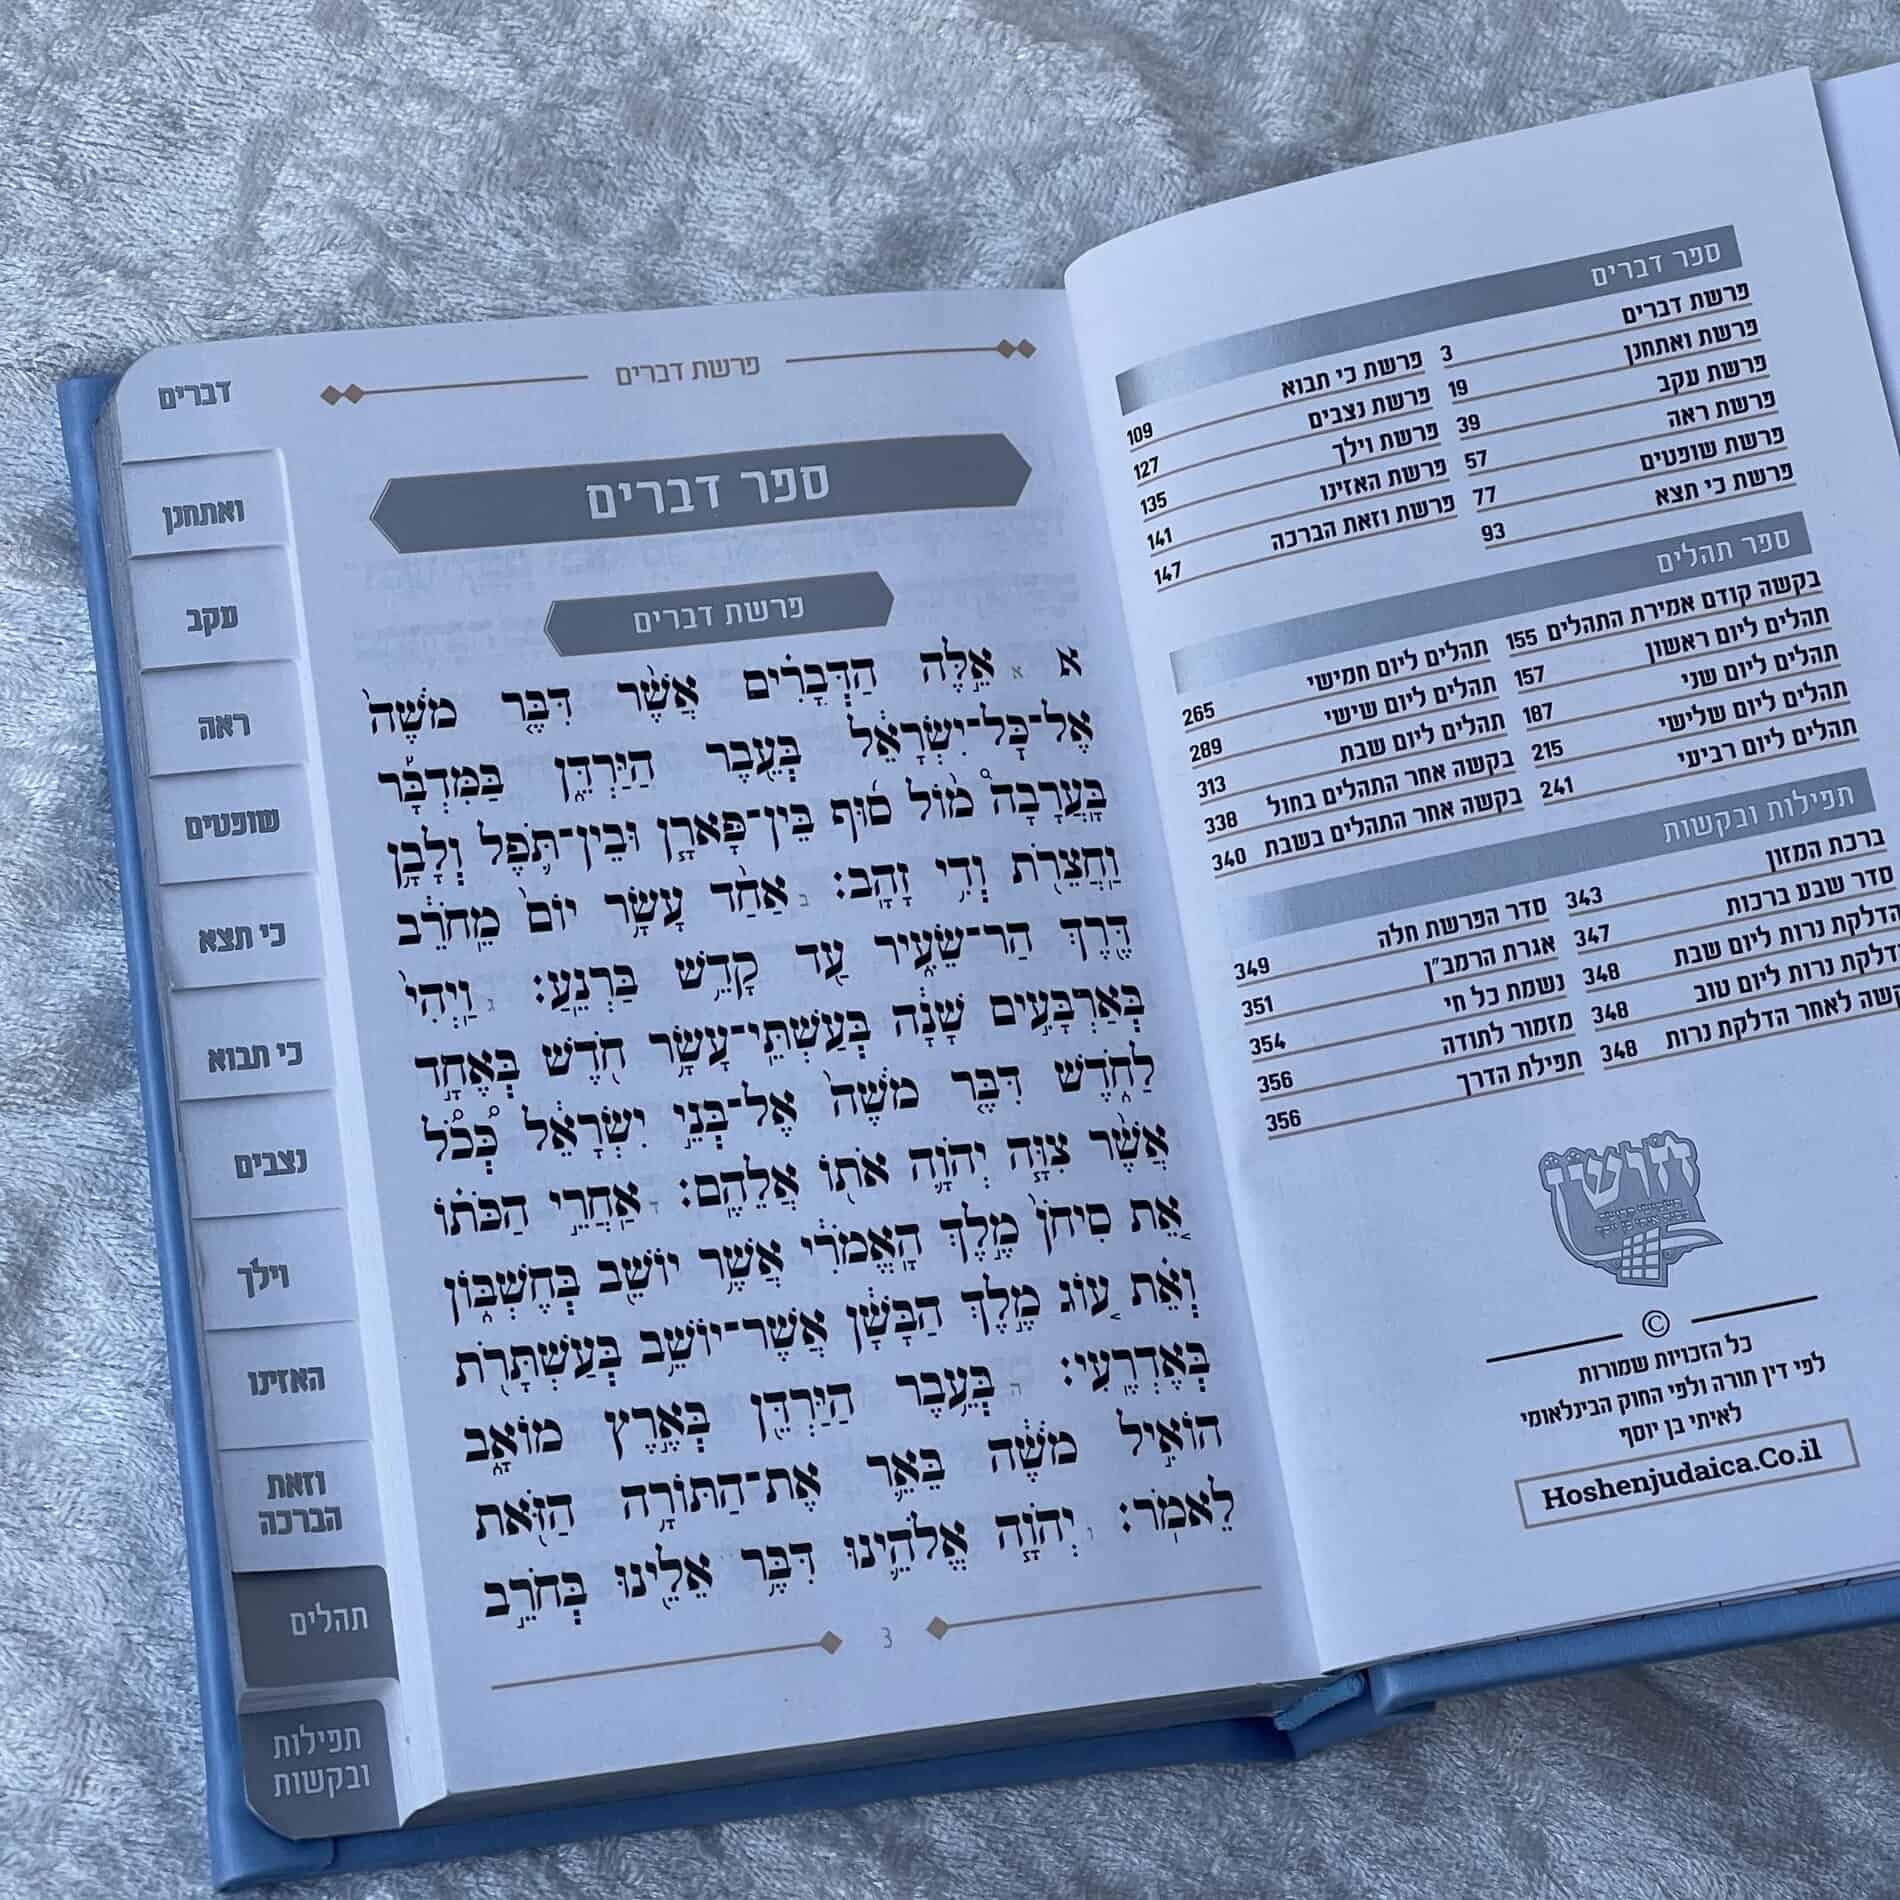 ספר דברים
פרשת דברים 3
פרשת ואתחנן 19
פרשת עקב 39
פרשת ראה 57
פרשת שופטים 77
פרשת כי תצא 93
פרשת כי תבוא 109
פרשת נצבים 127
פרשת וילך 135
פרשת האזינו 141
פרשת וזאת הברכה 147
ספר תהלים
בקשה קודם אמירת התהלים 155
תהלים ליום ראשון 157
תהלים ליום שני 187
תהלים ליום שלישי 215
תהלים ליום רביעי 241
תהלים ליום חמישי 265
תהלים ליום שישי 289
תהלים ליום שבת 313
בקשה אחר התהלים בחול 338
בקשה אחר התהלים בשבת 340
תפילות ובקשות
ברכת המזון 343
סדר שבע ברכות 347
הדלקת נרות ליום שבת 348
דלקת נרות ליום טוב 348
קשה לאחר הדלקת נרות 348
סדר הפרשת חלה 349
אגרת הרמב"ן 351
נשמת כל חי 354
מזמור לתודה 356
תפילת הדרך 356
חושן
©
כל הזכויות שמורות
לפי דין תורה ולפי החוק הבינלאומי
לאיתי בן יוסף
Hoshenjudaica.Co.il
פרשת דברים
ספר דברים
פרשת דברים
א א אֵ֣לֶּה הַדְּבָרִ֗ים אֲשֶׁ֨ר דִּבֶּ֤ר מֹשֶׁה֙
אֶל־כׇּל־יִשְׂרָאֵ֔ל בְּעֵ֖בֶר הַיַּרְדֵּ֑ן בַּמִּדְבָּ֡ר
בָּֽעֲרָבָה֩ מ֨וֹל ס֜וּף בֵּֽין־פָּארָ֧ן וּבֵֽין־תֹּ֛פֶל וְלָבָ֥ן
וַֽחֲצֵרֹ֖ת וְדִ֥י זָהָֽב׃ ב אַחַ֨ד עָשָׂ֥ר יוֹם֙ מֵֽחֹרֵ֔ב
דֶּ֖רֶךְ הַר־שֵׂעִ֑יר עַ֖ד קָדֵ֥שׁ בַּרְנֵֽעַ׃ ג וַֽיְהִי֙
בְּאַרְבָּעִ֣ים שָׁנָ֔ה בְּעַשְׁתֵּֽי־עָשָׂ֥ר חֹ֖דֶשׁ בְּאֶחָ֣ד
לַחֹ֑דֶשׁ דִּבֶּ֤ר מֹשֶׁה֙ אֶל־בְּנֵ֣י יִשְׂרָאֵ֔ל כְּ֠כֹ֠ל
אֲשֶׁ֨ר צִוָּ֧ה יְהֹוָ֛ה אֹת֖וֹ אֲלֵהֶֽם׃ ד אַֽחֲרֵ֣י הַכֹּת֗וֹ
אֵ֚ת סִיחֹן֙ מֶ֣לֶךְ הָֽאֱמֹרִ֔י אֲשֶׁ֥ר יוֹשֵׁ֖ב בְּחֶשְׁבּ֑וֹן
וְאֵ֗ת ע֚וֹג מֶ֣לֶךְ הַבָּשָׁ֔ן אֲשֶׁר־יוֹשֵׁ֥ב בְּעַשְׁתָּרֹ֖ת
בְּאֶדְרֶֽעִי׃ ה בְּעֵ֥בֶר הַיַּרְדֵּ֖ן בְּאֶ֣רֶץ מוֹאָ֑ב
הוֹאִ֣יל מֹשֶׁ֔ה בֵּאֵ֛ר אֶת־הַתּוֹרָ֥ה הַזֹּ֖את
לֵאמֹֽר׃ ו יְהֹוָ֧ה אֱלֹהֵ֛ינוּ דִּבֶּ֥ר אֵלֵ֖ינוּ בְּחֹרֵ֣ב
3
דברים
ואתחנן
עקב
ראה
שופטים
כי תצא
כי תבוא
נצבים
וילך
האזינו
וזאת
הברכה
תהלים
תפילות
ובקשות